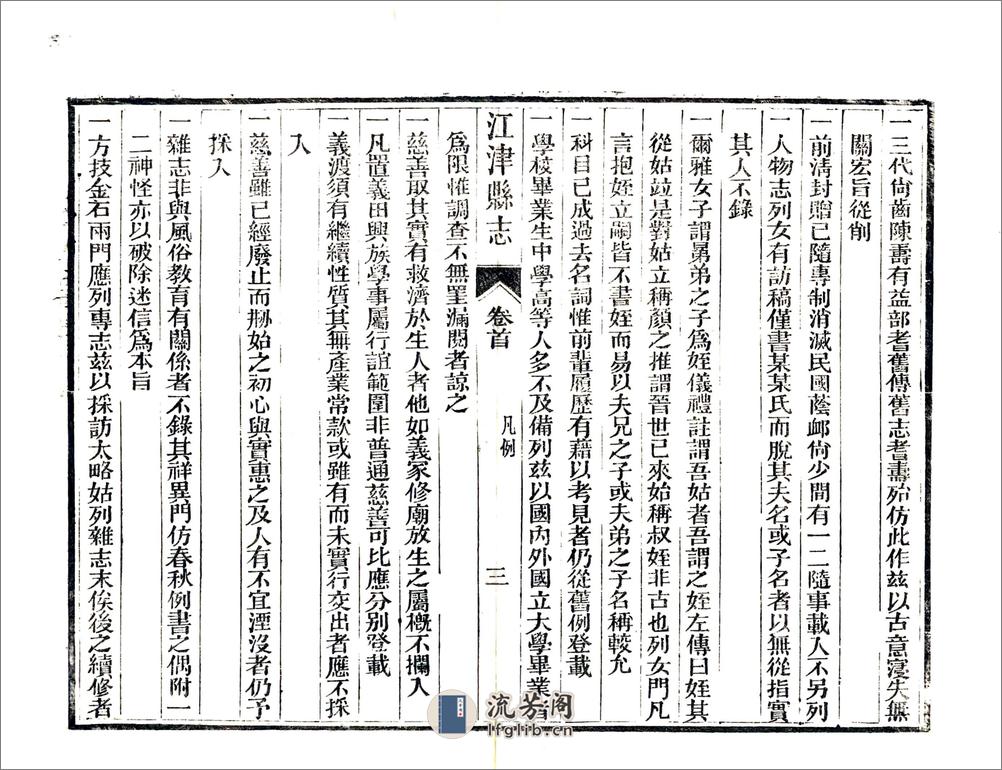 一三代尙齒陳壽有益部耆舊傳舊志耆壽殆仿此作玆以古意寖失無
關宏旨從削
一前淸封贈已隨專制消滅民國蔭䘏尙少間有一二隨事載入不另列
一人物志列女有訪稿僅書某某氏而脫其夫名或子名者以無從指實
其人不錄
一爾雅女子謂晜弟之子爲姪儀禮註謂吾姑者吾謂之姪左傳曰姪其
從姑竝是對姑立稱顏之推謂晉世已來始稱叔姪非古也列女門凡
言抱姪立嗣皆不書姪而易以夫兄之子或夫弟之子名稱較允
一科目已成過去名詞惟前輩履歷有藉以考見者仍從舊例登載
一學校畢業生中學高等人多不及備列玆以國內外國立大學畢業者
江津縣志
卷首
凡例
三
爲限惟調查不無罣漏閱者諒之
一慈善取其實有救濟於生人者他如義冢修廟放生之屬槪不攔入
一凡置義田興族學事屬行誼範圍非普通慈善可比應分別登載
一義渡須有繼續性質其無產業常款或雖有而未實行交出者應不採
入
一慈善雖已經廢止而刱始之初心與實惠之及人有不宜湮沒者仍予
採入
一雜志非與風俗教育有關係者不錄其祥異門仿春秋例書之偶附一
二神怪亦以破除迷信爲本旨
一方技金石兩門應列專志玆以採訪太略姑列雜志末俟後之續修者
流芳阁
lfglib.cn